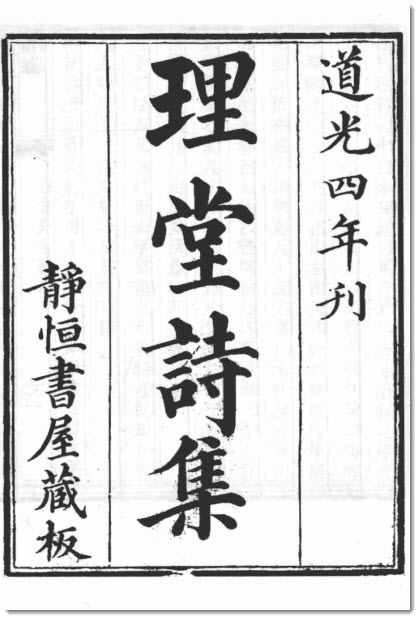 道光四年刊
理堂詩集
靜恒書屋藏板